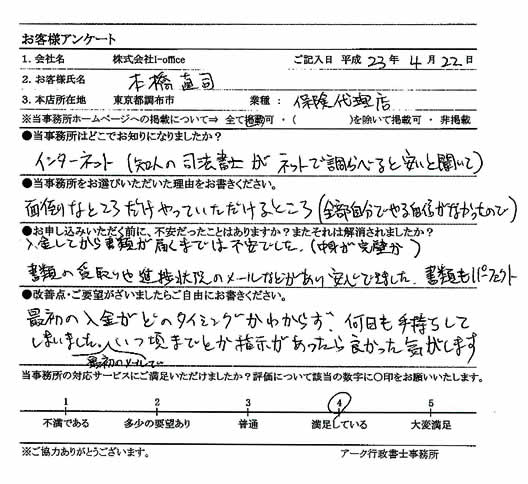 お客様アンケート
1. 会社名 株式会社I-office ご記入日 平成 23年 4月 22日
2. お客様氏名 本橋直司
3. 本店所在地 東京都調布市 業種： 保険代理店
※当事務所ホームページへの掲載について⇒ 全て掲載可・( )を除いて掲載可 ・ 非掲載
●当事務所はどこでお知りになりましたか？
インターネット (知人の司法書士が ネットで調らべると安いと聞いて)
●当事務所をお選びいただいた理由をお書きください。
面倒なところだけやっていただけるところ (全部自分でやる自信がなかったので)
●お申し込みいただく前に、不安だったことはありますか？またそれは解消されましたか？
入金してから書類が届くまでは不安でした。
書類の受取りや進捗状況のメールなどがあり安心できました。書類もパーフェクト
●改善点・ご要望がざいましたらご自由にお書きください。
最初の入金がどのタイミングかわからず、何日も手持ちして
しまいました。いつ頃までとか指示があったら良かった気がします
最初のメールで
当事務所の対応サービスにご満足いただけましたか？評価について該当の数字に〇印をお願いいたします。
1 2 3 4 5
不満である 多少の要望あり 普通 満足している 大変満足
※ご協力ありがとうございます。 アーク行政書士事務所